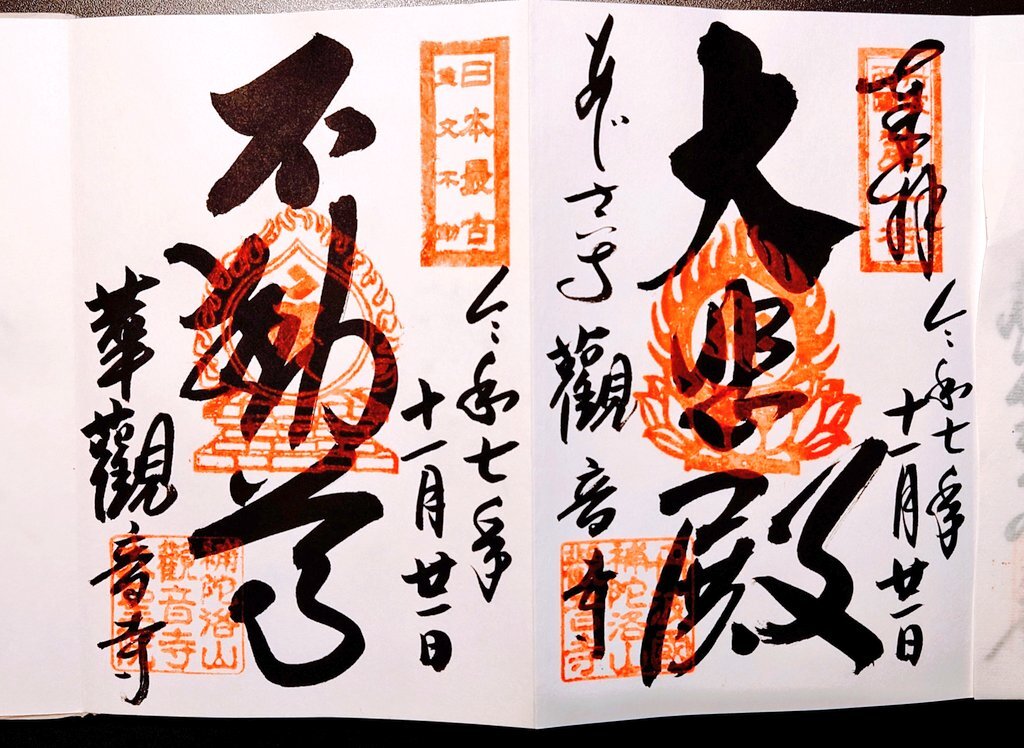 奉拝
令和七年
十一月廿一日
大悲殿
あじさい寺
觀音寺
補陀洛山
日本最古
文不動
令和七年
十一月廿一日
不動尊
華觀音寺
補陀洛山
觀音寺